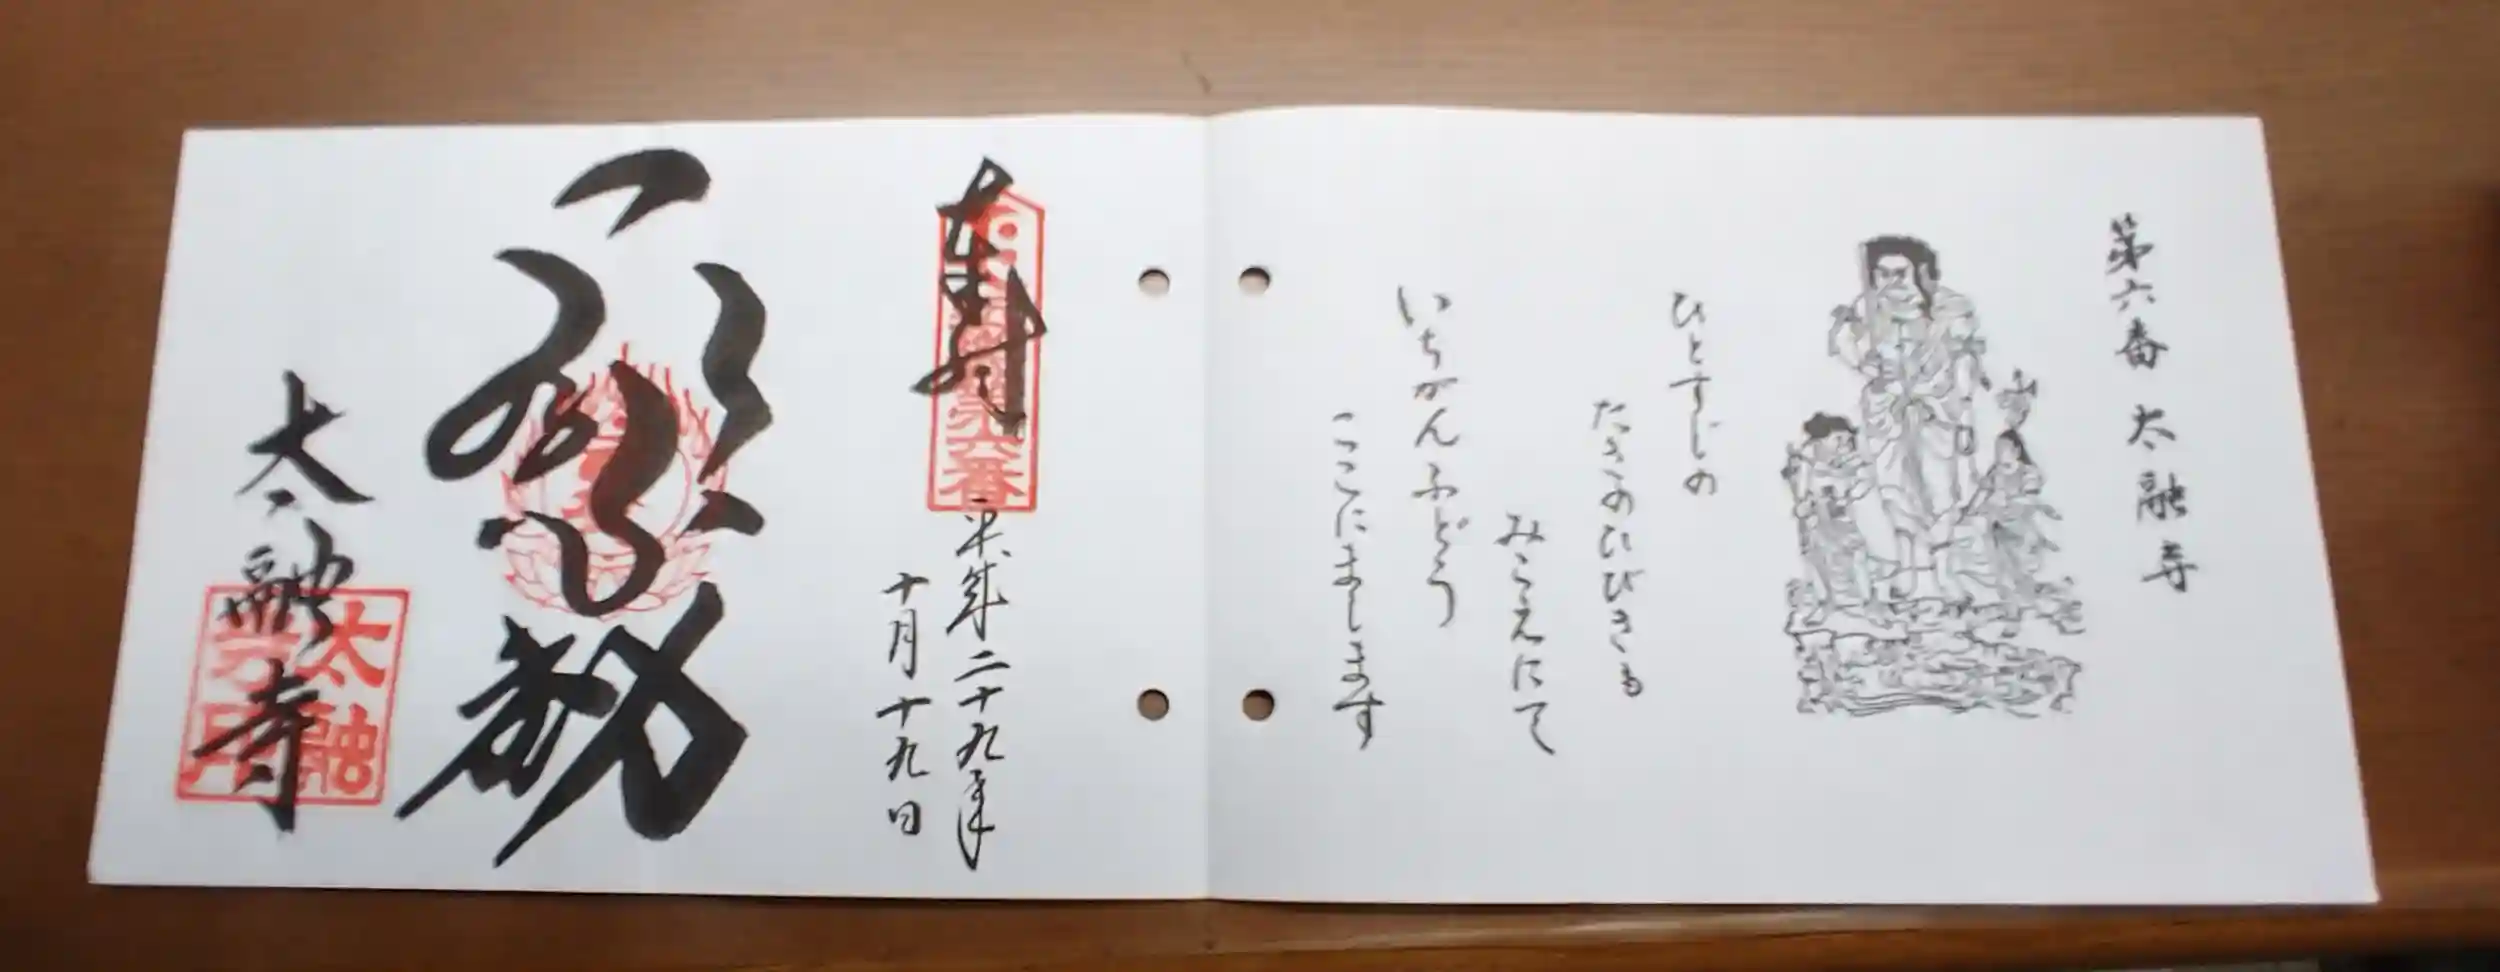 第六番 太融寺
ひとすじの
たきのひびきも
みこえにて
いちがんふどう
ここにまします
奉拝
第六番
平成二十九年
十月十九日
不動
太融寺
太融
寺